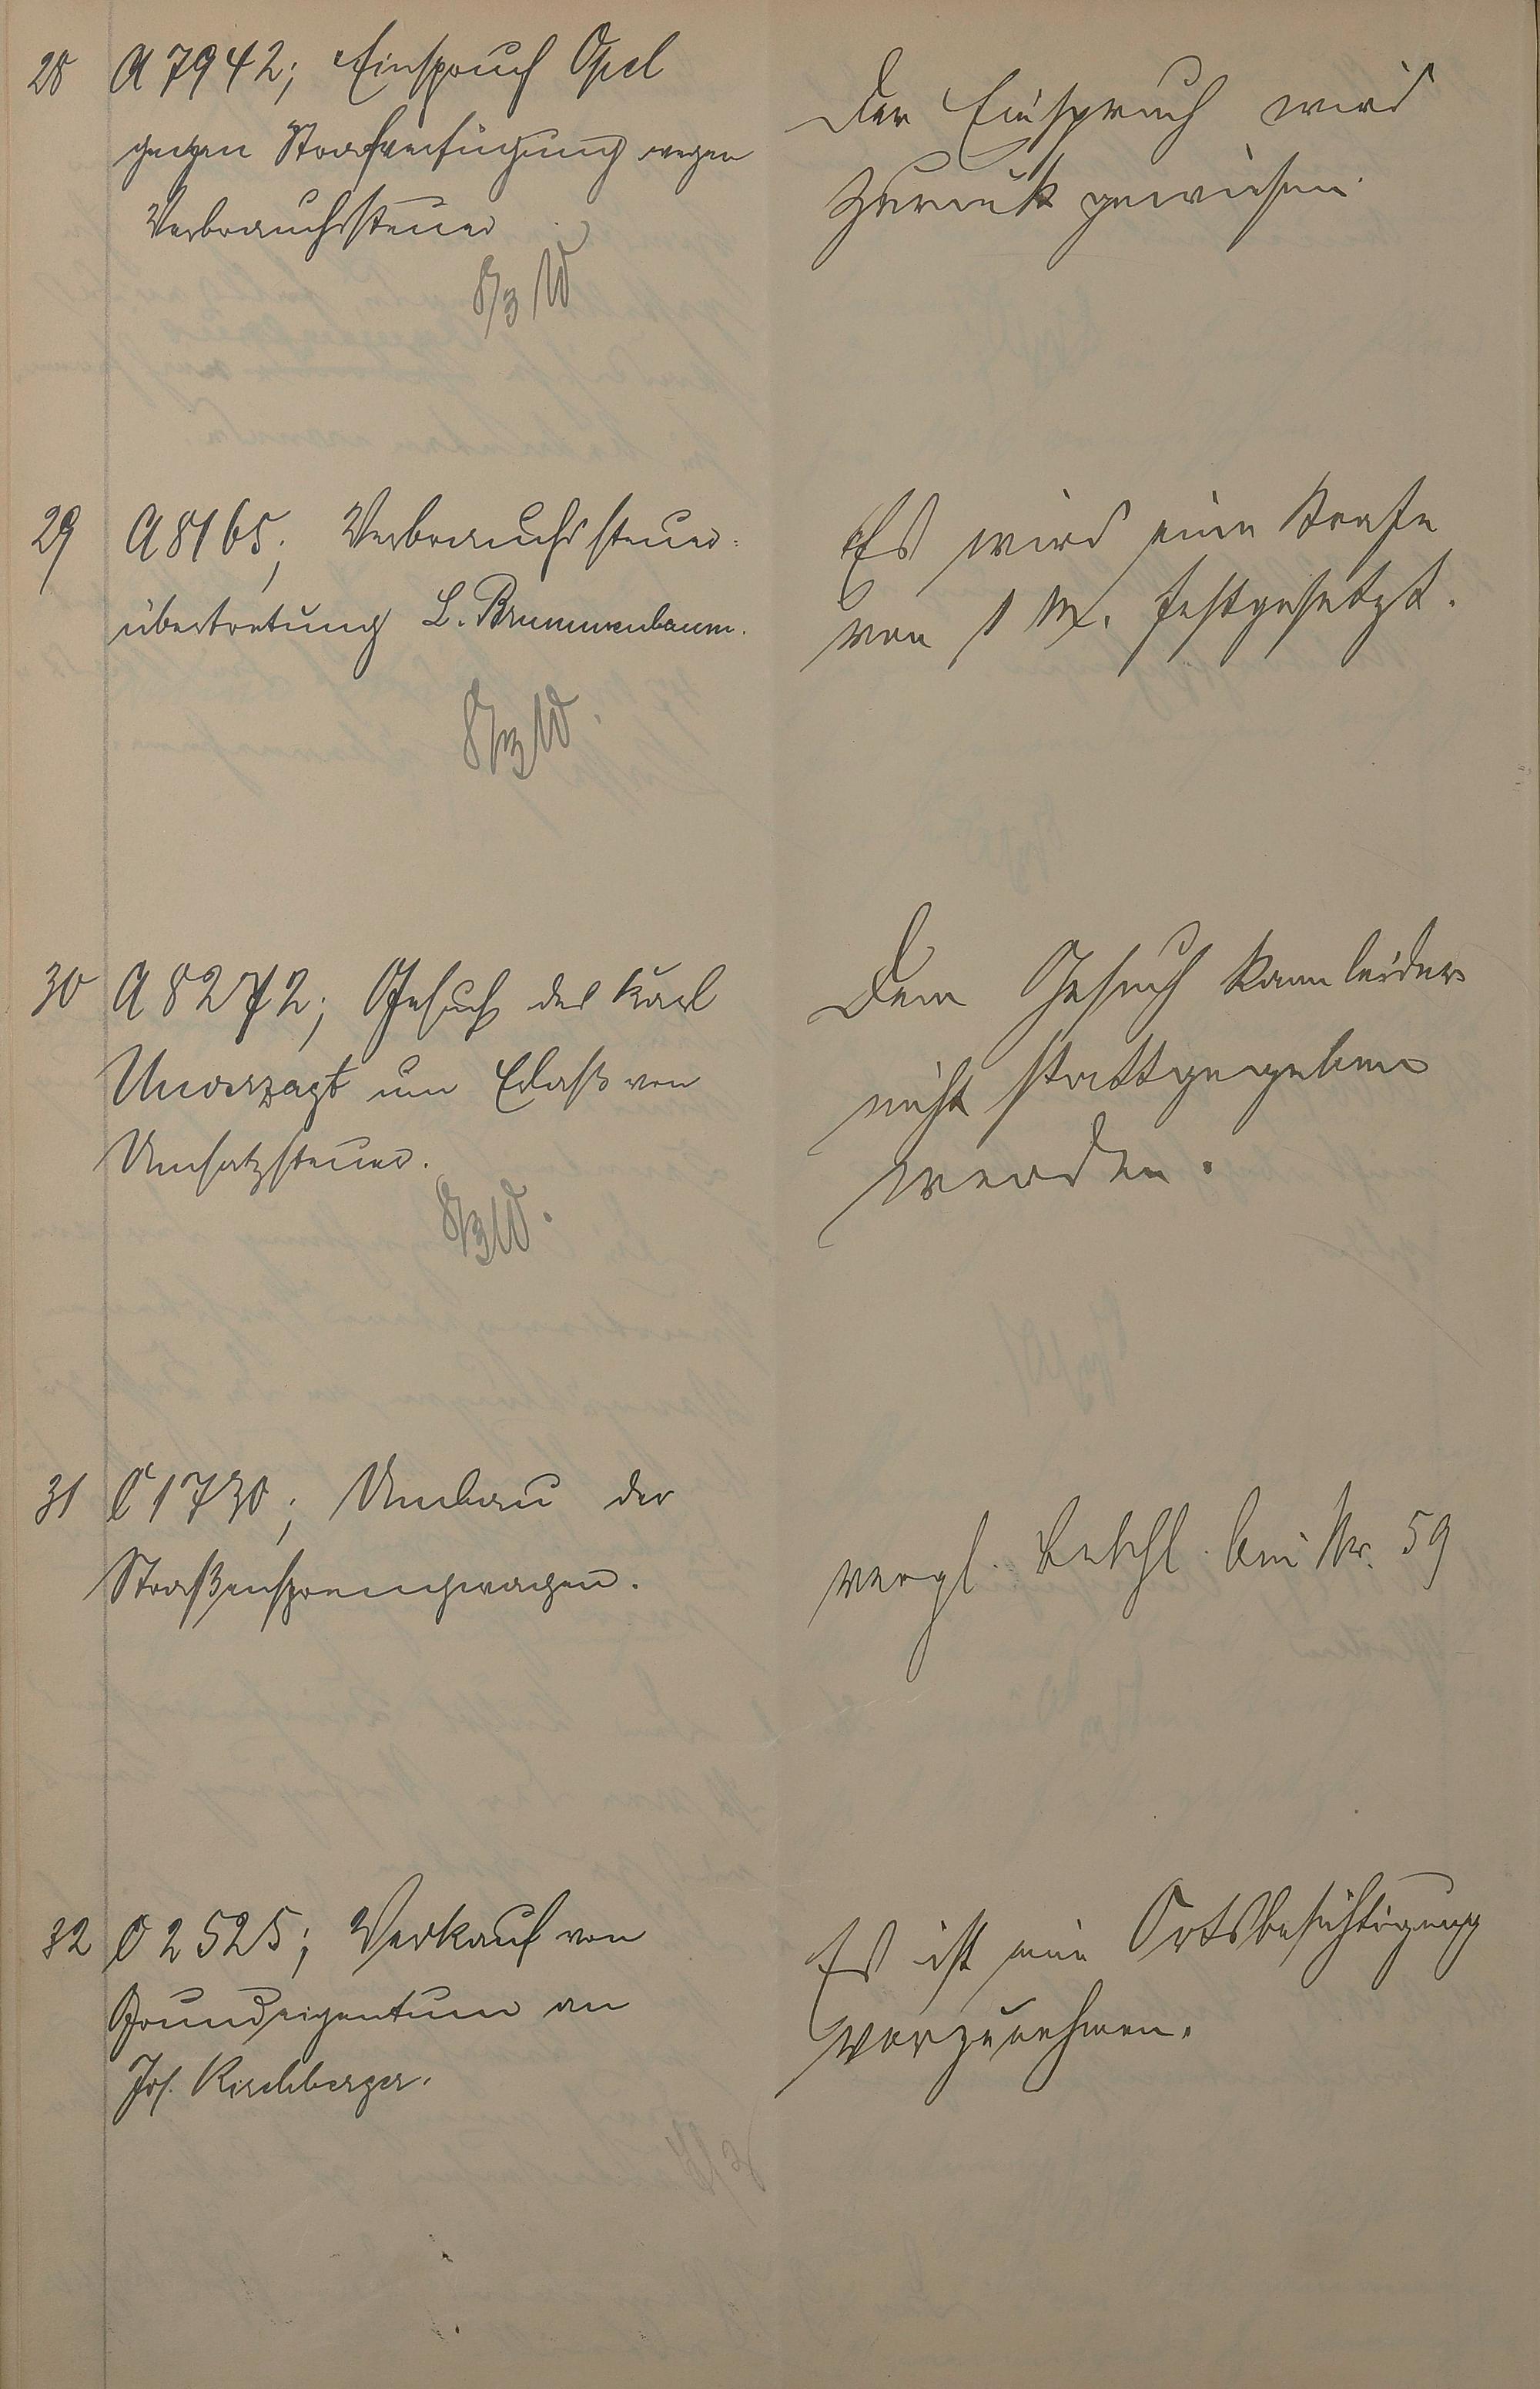 28 A 7942; Einspruch Opel
gegen Strafverfügung wegen
Verbrauchssteuer
8/3 W
Der Einspruch wird
zurück gewiesen.
29 A 8165; Verbrauchssteuer-
übertretung L. Brummenbaum.
8/3 W.
Es wird eine Strafe
von 1 M. festgesetzt.
30 A 8272; Gesuch des Karl
Unverzagt um Erlaß von
Umsatzsteuer.
8/3 W.
Dem Gesuch kann leider
nicht stattgegeben
werden.
31 C 1730; Umbau der
Straßensprengwagen.
vergl. Beschl. bei Nr. 59
32 C 2525; Verkauf von
Grundeigentum an
Jos. Kirchberger.
Es ist eine Ortsbesichtigung
vorzunehmen.